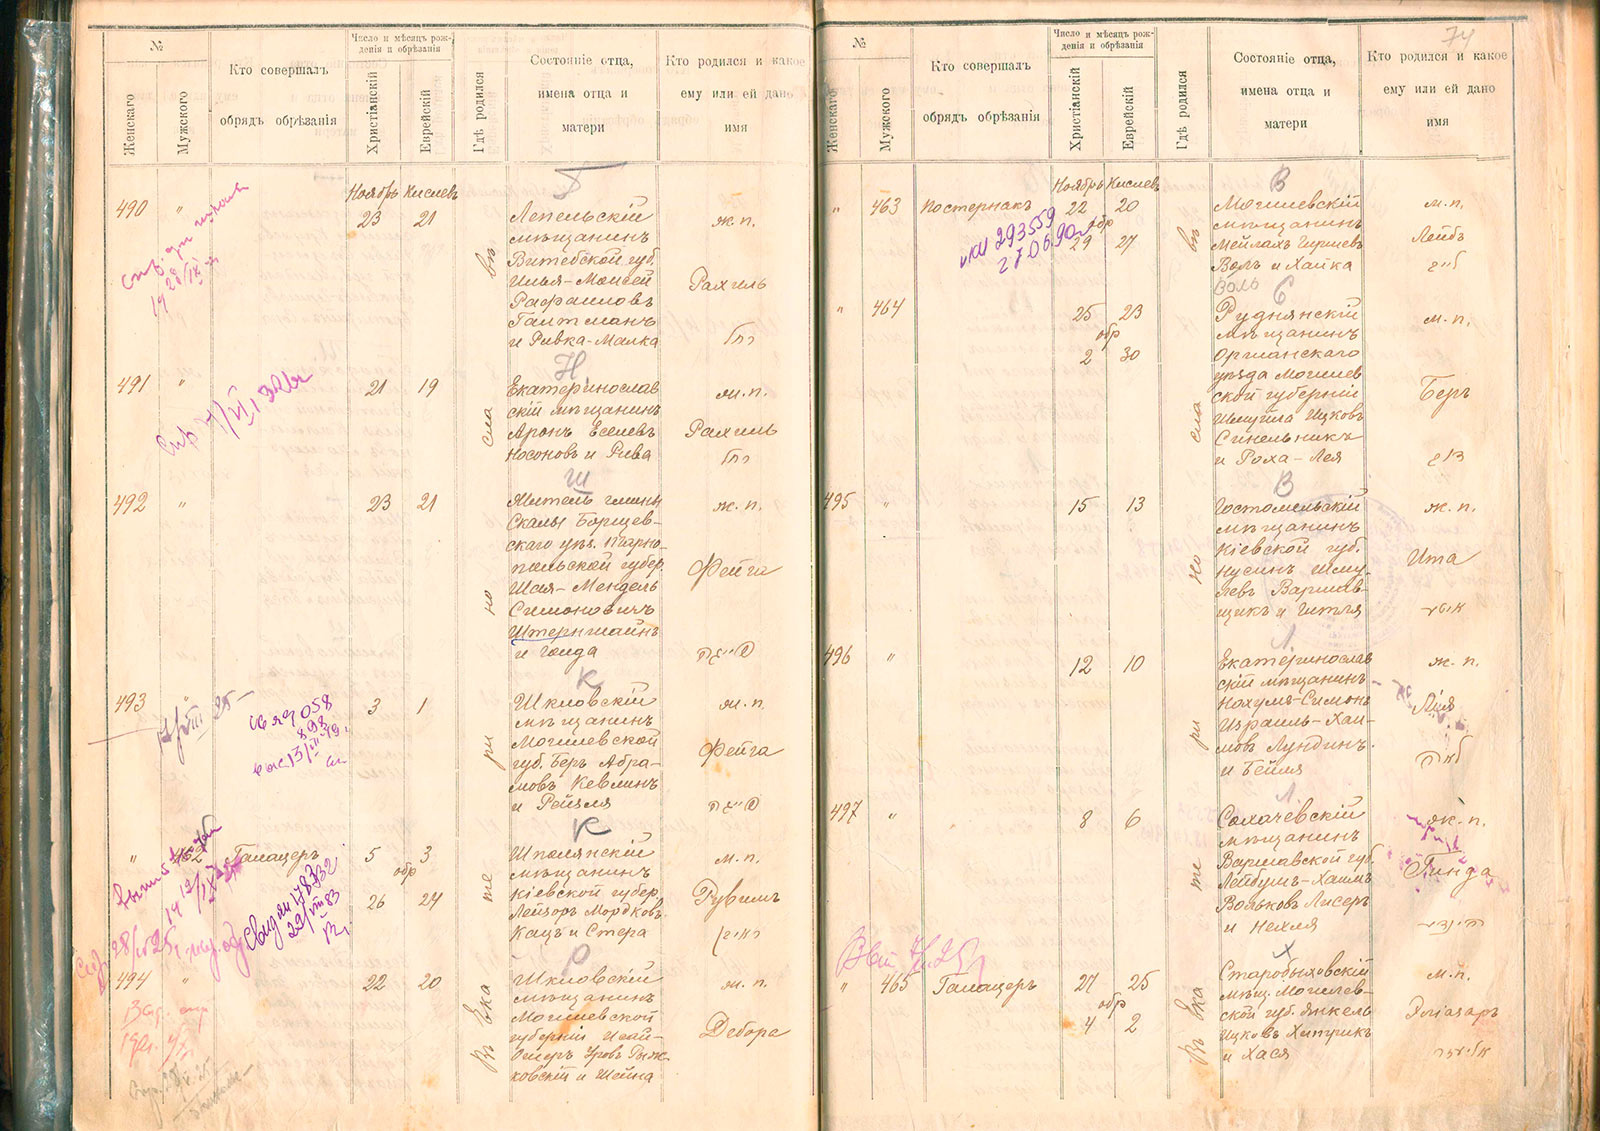 №
Женскаго
Мужского
Кто совершалъ
обрядъ обрѣзанія
Число и мѣсяцъ рож-
денія и обрѣзанія
Христіанскій
Еврейскій
Гдѣ родился
Состояніе отца,
имена отца и
матери
Кто родился и какое
ему или ей дано
имя
Ноябрь Кислевъ
490 " 23 21
Лепельскій
мѣщанинъ
Витебской губ.
Илья-Моисей
Рафаиловъ
Гантманъ
и Ривка-Малка
ж.п.
Рахиль
רחל
Н
491 " 21 19
Екатеринослав
скій мѣщанинъ
Аронъ Еселевъ
Носоновъ и Рива
ж.п.
Рахиль
רחל
Ш
492 " 23 21
Житель гмины
Скалы Борщев-
скаго уѣз. Тарно-
польской губер.
Шая-Мендель
Симоновичъ
Штерншайнъ
и Голда
ж.п.
Фейга
פייגא
К
493 " 3 1
Шкловскій
мѣщанинъ
Могилевской
губ. Беръ Абра-
мовъ Кевлинъ
и Рейзля
ж.п.
Фейга
פייגא
К
" 462 Галацеръ 5 3
обр
26 24
Шполянскій
мѣщанинъ
Кіевской губер.
Лейзоръ Мордковъ
Кацъ и Стера
м.п.
Рувимъ
ראובן
Р
494 " 22 20
Шкловскій
мѣщанинъ
Могилевской
губерніи Исай-
Ошеръ Уровъ Рыж-
ковскій и Шейна
ж.п.
Дебора
Въ Ека те ри но сла въ
74
№
Женскаго
Мужского
Кто совершалъ
обрядъ обрѣзанія
Число и мѣсяцъ рож-
денія и обрѣзанія
Христіанскій
Еврейскій
Гдѣ родился
Состояніе отца,
имена отца и
матери
Кто родился и какое
ему или ей дано
имя
Ноябрь Кислевъ
В
" 463 Постернакъ 22 20
обр
29 27
293559
27.06.90
Могилевскій
мѣщанинъ
Мейлахъ Гиршевъ
Волъ и Хайка
Воль
м.п.
Лейбъ
לייב
С
" 464 25 23
обр
2 30
Руднянскій
мѣщанинъ
Оршанскаго
уѣзда Могилев
ской губерніи
Шмуйла Ицковъ
Синельникъ
и Роха-Лея
м.п.
Беръ
В
495 " 15 13
Гостомельскій
мѣщанинъ
Кіевской губ.
Нусинъ Шму-
левъ Варшав-
щикъ и Гитля
ж.п.
Ита
Л
496 " 12 10
Екатеринослав
скій мѣщанинъ
Нохумъ-Симонъ
Израиль-Хаи-
мовъ Лундинъ
и Бейля
ж.п.
Лія
Л
497 " 8 6
Сохачевскій
мѣщанинъ
Варшавской губ.
Лейбушъ-Хаимъ
Вольковъ Лисеръ
и Нехля
ж.п.
Гинда
Х
" 465 Галацеръ 27 25
обр
4 2
Старобыховскій
мѣщ. Могилев-
ской губ. Янкель
Ицковъ Хиприкъ
и Хася
м.п.
Эліазаръ
Въ Ека те ри но сла въ